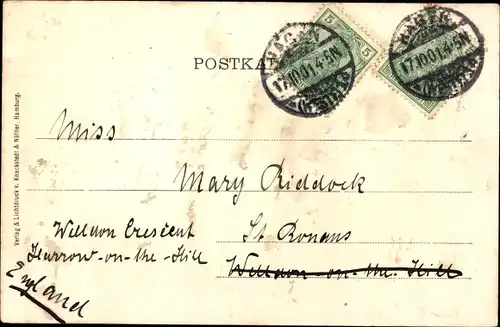 POSTKA
HAGEN
17.10.01.4-5N
HAGEN
17.10.01.4-5N
5
5
Miss
Mary Riddock
Welldon Crescent
St Ronans
Harrow-on-the-Hill
Welldon-on-the-Hill
England
Verlag & Lichtdruck v. Knackstedt & Näther, Hamburg.